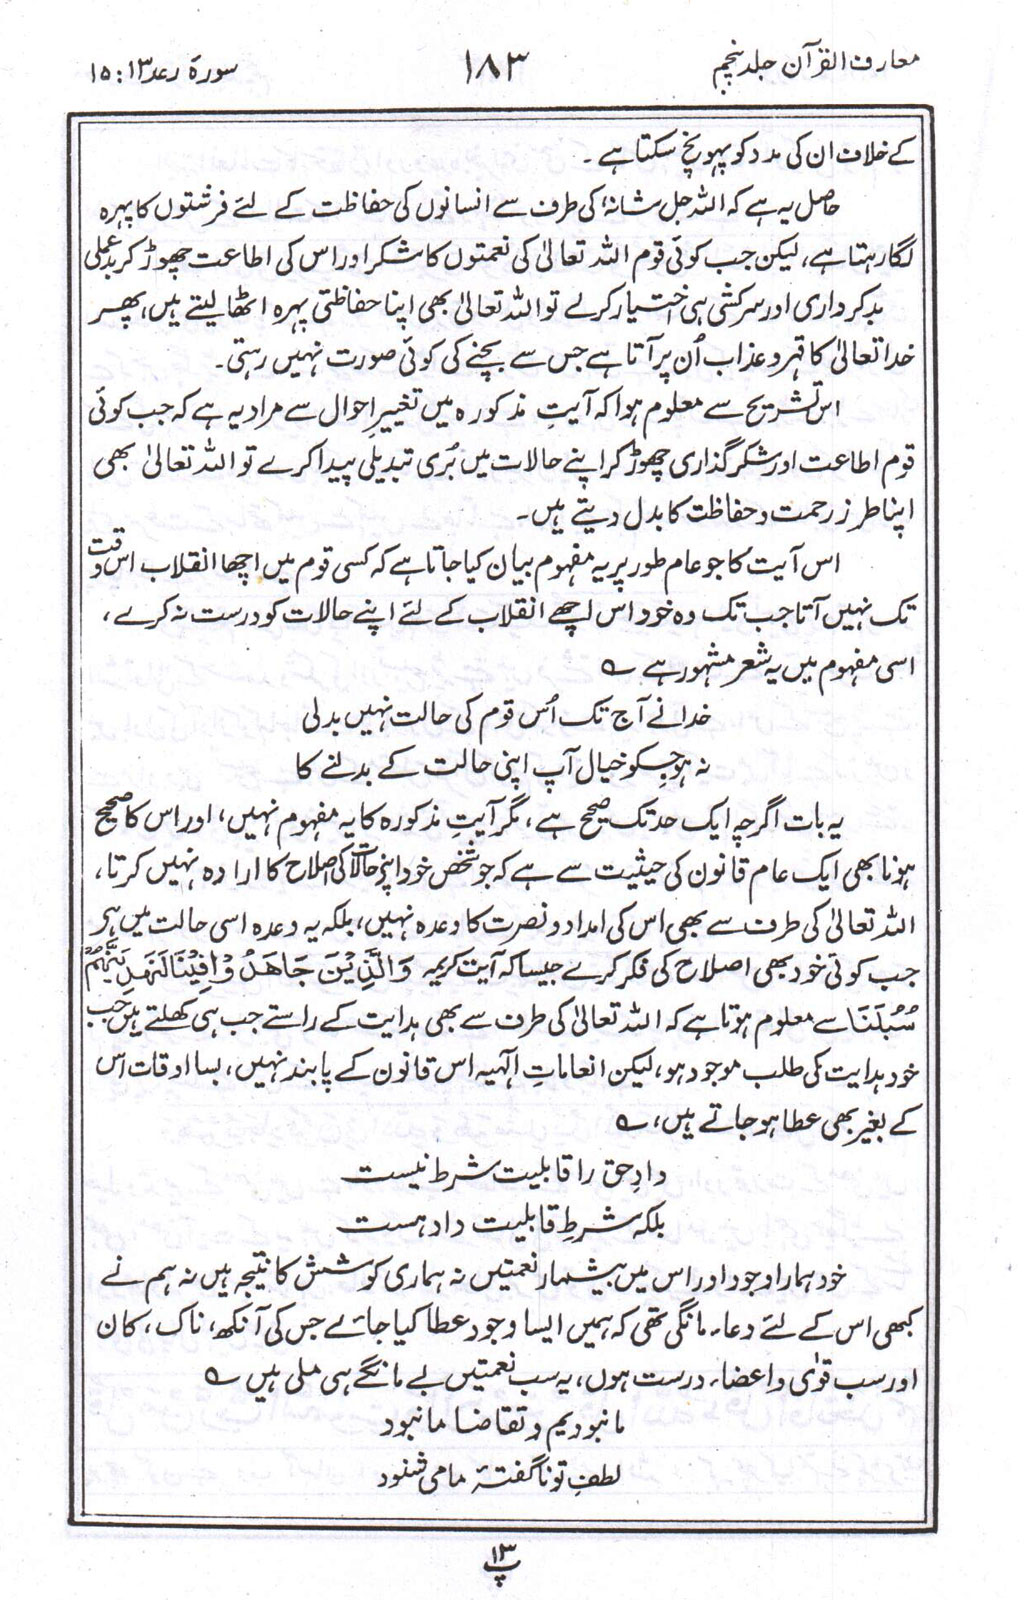 معارف القرآن جلد پنجم
۱۸۳
سورۂ رعد ۱۳ : ۱۵
کے خلاف ان کی مدد کو پہونچ سکتا ہے ۔
حاصل یہ ہے کہ اللہ جل شانہٗ کی طرف سے انسانوں کی حفاظت کے لئے فرشتوں کا پہرہ
لگا رہتا ہے، لیکن جب کوئی قوم اللہ تعالیٰ کی نعمتوں کا شکر اور اس کی اطاعت چھوڑ کر بدعملی
بدکرداری اور سرکشی ہی اختیار کرلے تو اللہ تعالیٰ بھی اپنا حفاظتی پہرہ اٹھا لیتے ہیں، پھر
خدا تعالیٰ کا قہر و عذاب اُن پر آتا ہے جس سے بچنے کی کوئی صورت نہیں رہتی۔
اس تشریح سے معلوم ہوا کہ آیتِ مذکورہ میں تغییرِ احوال سے مراد یہ ہے کہ جب کوئی
قوم اطاعت اور شکر گذاری چھوڑ کر اپنے حالات میں بُری تبدیلی پیدا کرے تو اللہ تعالیٰ بھی
اپنا طرز رحمت و حفاظت کا بدل دیتے ہیں۔
اس آیت کا جو عام طور پر یہ مفہوم بیان کیا جاتا ہے کہ کسی قوم میں اچھا انقلاب اس وقت
تک نہیں آتا جب تک وہ خود اس اچھے انقلاب کے لئے اپنے حالات کو درست نہ کرے ،
اسی مفہوم میں یہ شعر مشہور ہے ؎
خدا نے آج تک اُس قوم کی حالت نہیں بدلی
نہ ہو جسکو خیال آپ اپنی حالت کے بدلنے کا
یہ بات اگرچہ ایک حد تک صحیح ہے ، مگر آیتِ مذکورہ کا یہ مفہوم نہیں، اور اس کا صحیح
ہونا بھی ایک عام قانون کی حیثیت سے ہے کہ جو شخص خود اپنے حالات کی اصلاح کا ارادہ نہیں کرتا،
اللہ تعالیٰ کی طرف سے بھی اس کی امداد و نصرت کا وعدہ نہیں، بلکہ یہ وعدہ اسی حالت میں ہر
جب کوئی خود بھی اصلاح کی فکر کرے جیسا کہ آیت کریمہ وَالَّذِيْنَ جَاهَدُوْا فِيْنَا لَنَهْدِيَنَّهُمْ
سُبُلَنَا سے معلوم ہوتا ہے کہ اللہ تعالیٰ کی طرف سے بھی ہدایت کے راستے جب ہی کھلتے ہیں جب
خود ہدایت کی طلب موجود ہو، لیکن انعاماتِ الٰہیہ اس قانون کے پابند نہیں، بسا اوقات اس
کے بغیر بھی عطا ہو جاتے ہیں، ؎
دادِ حق را قابلیت شرط نیست
بلکہ شرطِ قابلیت داد ہست
خود ہمارا وجود اور اس میں بیشمار نعمتیں نہ ہماری کوشش کا نتیجہ ہیں نہ ہم نے
کبھی اس کے لئے دعاء مانگی تھی کہ ہمیں ایسا وجود عطا کیا جائے جس کی آنکھ، ناک، کان
اور سب قوٰی و اعضاء درست ہوں، یہ سب نعمتیں بے مانگے ہی ملی ہیں ؎
ما نبودیم و تقاضا ما نبود
لطفِ تو ناگفتۂ ما می شنود
پ ۱۳